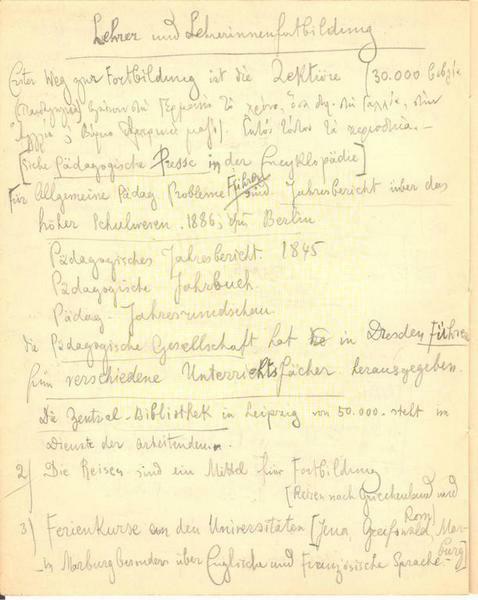 Lehrer und Lehrerinnenfortbildung
Erster Weg zur Fortbildung ist die Lektüre [30.000 βιβλία
βγαίνουν στη Γερμανία το χρόνο, όσα στη Γαλλία, στην
και Βόρειο Αμερική μαζί]. Εκτός τούτου τα περιοδικά.-
[siehe Pädagogische Presse in der Encyklopädie]
Für Allgemeine Pädag Probleme Führer sind Jahresbericht über das
höher Schulwesen. 1886, Berlin
Pädagogisches Jahresbericht. 1845
Pädagogische Jahrbuch.
Pädag. Jahresrundschau.
die Pädagogische Gesellschaft hat in Dresden Führer
für verschiedene Unterrichtsfächer herausgegeben.
Die Zentral-Bibliothek in Leipzig von 50.000. steht im
Dienste der arbeitenden.
2) Die Reisen sind ein Mittel für Fortbildung
[Reisen nach Griechenland und
Rom]
3) Ferienkurse an den Universitäten [Jena, Greifswald, Mar-
burg]
in Marburg besonders über Englische und Französische Sprache.-